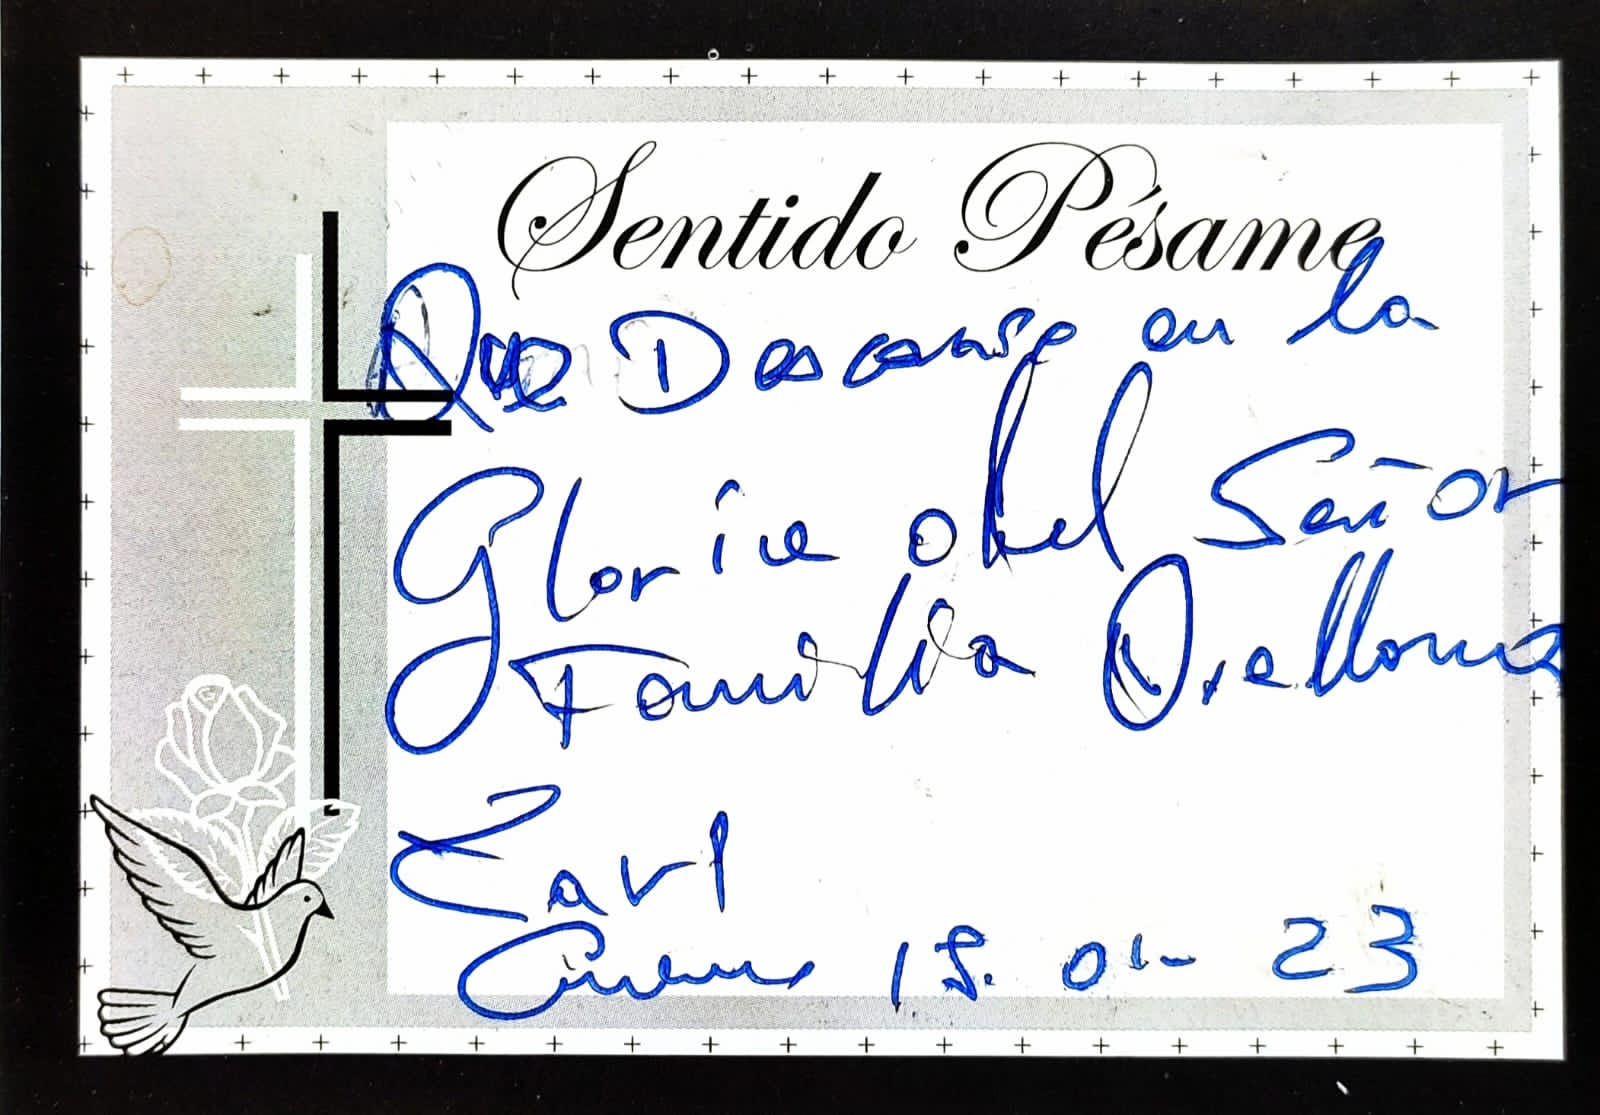 Sentido Pésame
Que Descanse en la
Gloria del Señor
Familia Orellana
15. 01- 23